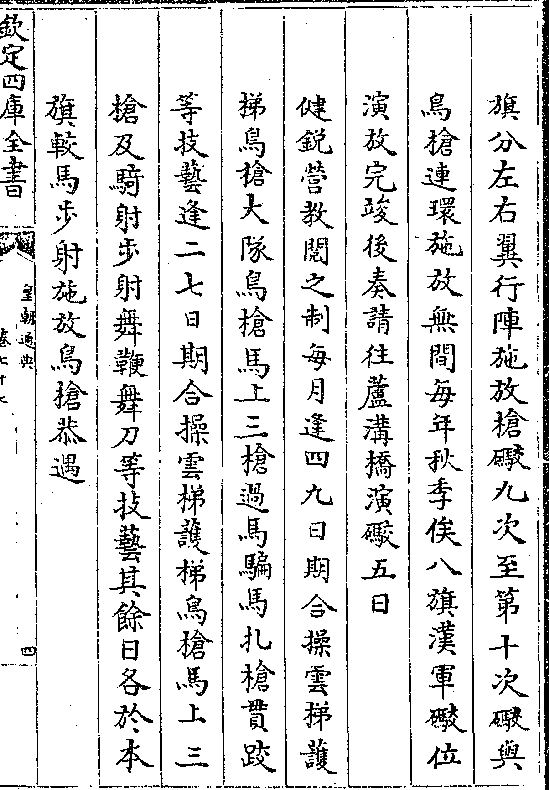 旗分左右翼行陣施放槍礟九次至第十次礟與
鳥槍連環施放無間每年秋季俟八旗漢軍礟位
演放完竣後奏請往蘆溝橋演礟五日
健鋭營教閲之制每月逢四九日期合操雲梯護
梯鳥槍大隊鳥槍馬上三槍過馬騙馬扎槍貫跤
等技藝逢二七日期合操雲梯護梯鳥槍馬上三
槍及騎射步射舞鞭舞刀等技藝其餘日各於本
旗較馬步射施放鳥槍恭遇
欽定四庫全書
皇朝通典
卷七十
四